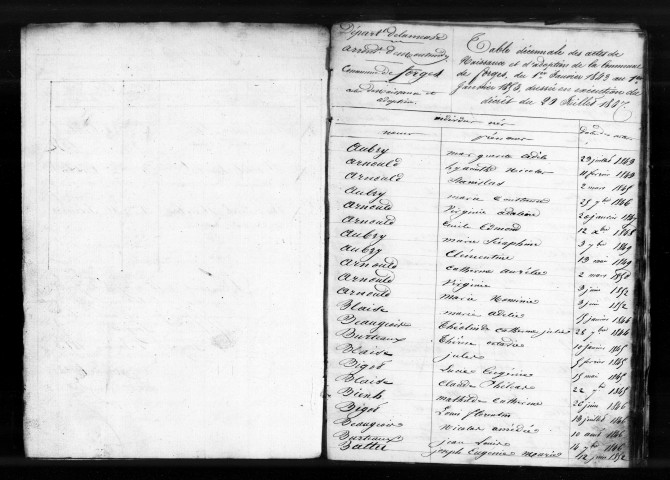 Départ. de la meuse
arrond. de montmédy
Commune de forges
acte de naissance et
adoption.
Table décennale des actes de
Naissance et d'adoption de la Commune
de forges, du 1er Janvier 1843 au 1er
Janvier 1853, dressée en exécution du
décret du 20 Juillet 1807
individus nés
noms prénoms Date des actes
Aubry marguerite adèle 29 juillet 1843
Arnould hyacinthe nicolas 11 février 1843
Arnould Stanislas 2 mars 1845
Aubry marie Constance 25 7bre 1846
Arnould Virginie adeline 20 janvier 1847
Arnould Emile Edmond 12 1848
Aubry marie Séraphine 3 7bre 1849
Aubry Clémentine 13 mai 1849
Arnould Catherine aurélie 2 mars 1850
Arnould Virginie 3 juin 1852
Arnould marie 3 juin 1852
Blaise marie adèle janvier 1846
Beaugeois Catherine julie 28 7bre 1844
Burteaux 10 janvier 1845
Blaise jules 5 février 1845
Bigot Lucie Eugénie 15 mai 1845
Blaise Claude 22 7bre 1845
Bienh mathilde Catherine 26 juin 1846
Bigot Louis florentin 18 juillet 1846
Beaugeois Nicolas amédée 10 août 1846
Burteaux jean Louis 14 7bre 1846
Battes joseph Eugène 12 juin 1852